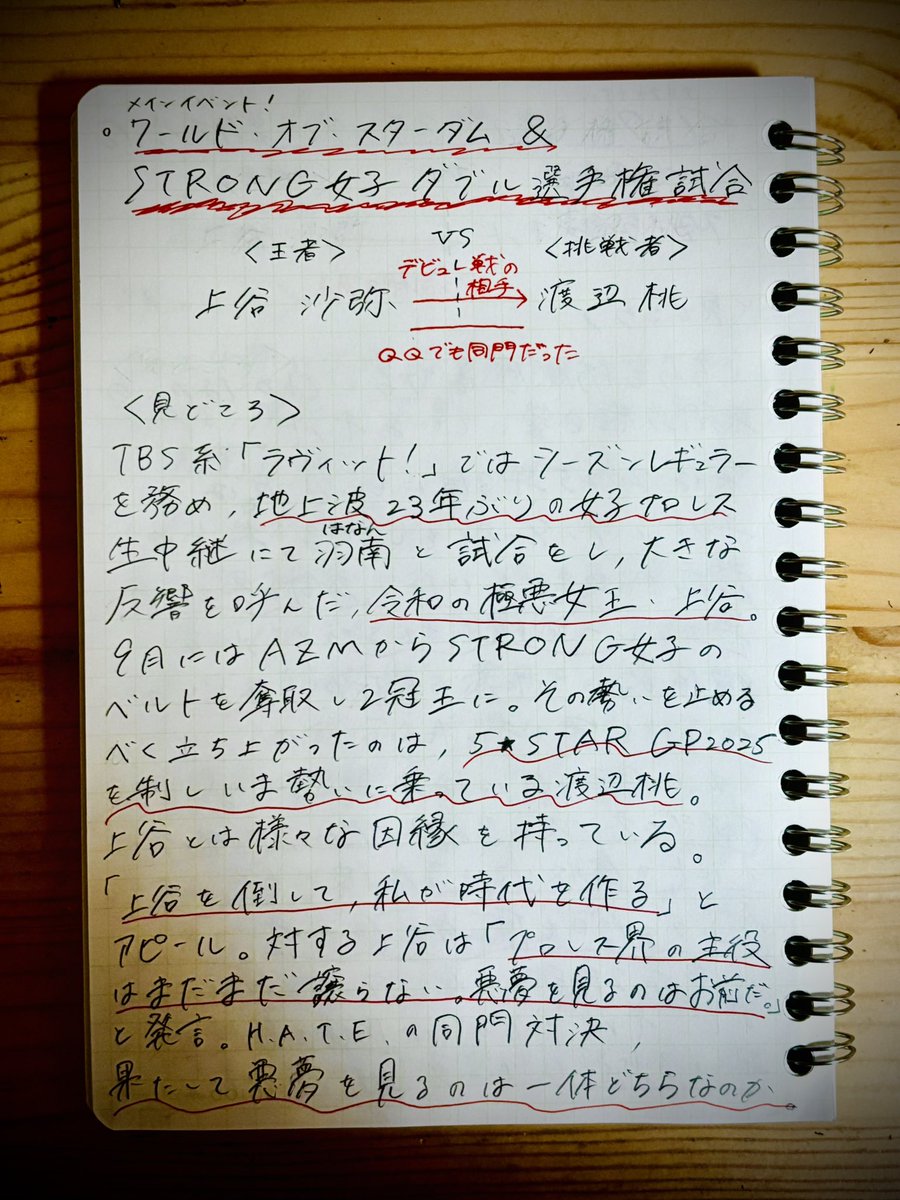 メインイベント!
。ワールド・オブ・スターダム &
STRONG女子ダブル選手権試合
<王者> VS <挑戦者>
デビュー戦の
相手
上谷 沙弥 渡辺 桃
QQでも同門だった
<見どころ>
TBS系「ラヴィット!」ではシーズンレギュラー
を務め、地上波23年ぶりの女子プロレス
はなん
生中継にて羽南と試合をし、大きな
反響を呼んだ、令和の極悪女王・上谷。
9月にはAZMからSTRONG女子の
ベルトを奪取し2冠王に。その勢いを止める
べく立ち上がったのは、5★STAR GP2025
を制しいま勢いに乗っている渡辺桃。
上谷とは様々な因縁を持っている。
「上谷を倒して、私が時代を作る」と
アピール。対する上谷は「プロレス界の主役
はまだまだ譲らない。悪夢を見るのはお前だ。」
と発言。H.A.T.E.の同門対決、
果たして悪夢を見るのは一体どちらなのか。